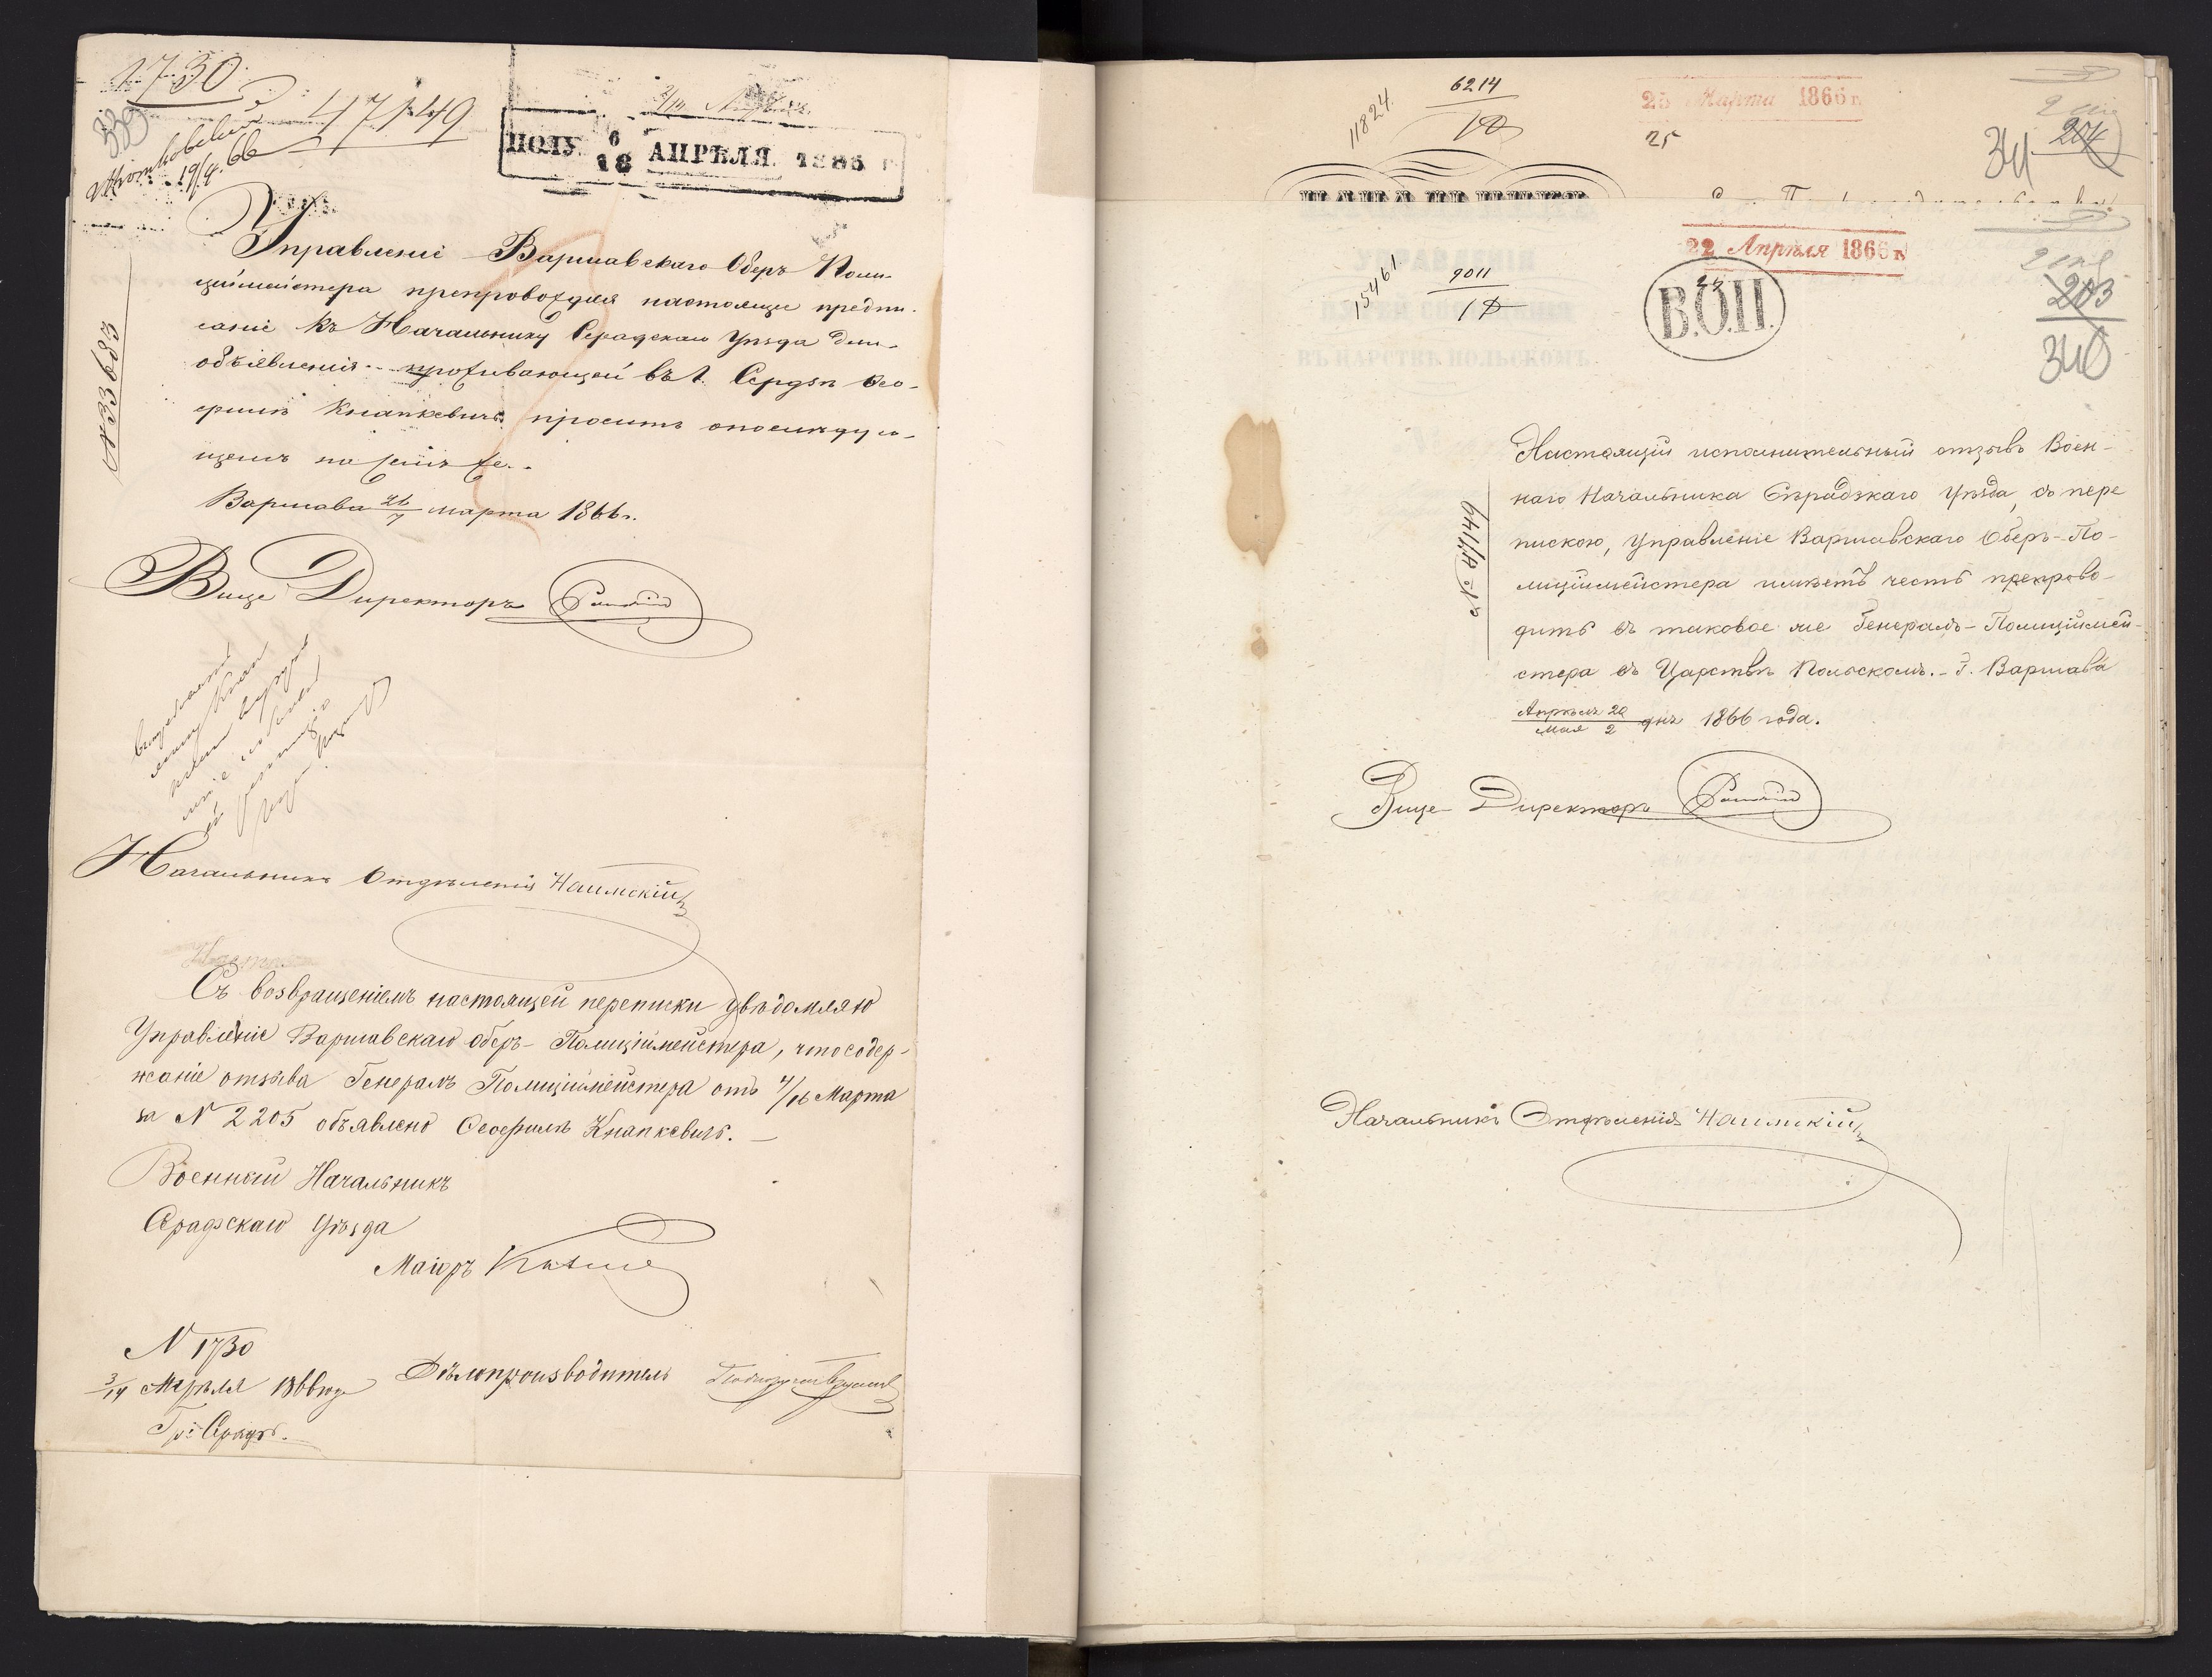 1730
47149
339
19/4 66
ПОЛУ. 6/18 АПРѢЛЯ 1866 г
Управленіе Варшавскаго Оберъ Поли-
ціймейстера препровождая настоящее предпи-
саніе къ Начальнику Серадскаго Уѣзда для
объявленія проживающей въ г. Серадзѣ Ѳео-
филѣ Кнапкевичъ проситъ о послѣдую-
щемъ
Варшава 26/7 марта 1866 г.
№ 33983
Вице Директоръ
Начальникъ Отдѣленія Наимскій
Съ возвращеніемъ настоящей переписки увѣдомляю
Управленіе Варшавскаго Оберъ-Полиціймейстера, что содер-
жаніе отзыва Генералъ Полиціймейстера отъ 4/16 Марта
за N 2205 объявлено Ѳеофилѣ Кнапкевичъ.
Военный Начальникъ
Серадскаго Уѣзда
Маіоръ
N 1730
Апрѣля 1866 года
Дѣлопроизводитель
Гр: Серадзь.
11824
6214
10
25 Марта 1866 г.
25
204
341
22 Апрѣля 1866 г.
В.О.П.
15461
9011
10
203
340
УПРАВЛЕНІЯ
ВЪ ЦАРСТВѢ ПОЛЬСКОМЪ.
Настоящій исполнительный отзывъ Воен-
наго Начальника Сѣрадзкаго Уѣзда, съ пере
пискою, Управленіе Варшавскаго Оберъ-По-
лиціймейстера имѣетъ честь препрово-
дить въ таковое же Генералъ-Полиціймей-
стера въ Царствѣ Польскомъ.- Г. Варшава
Апрѣля 20 / Мая 2 дня 1866 года.
№ 47149
Вице-Директоръ
Начальникъ Отдѣленія Наимскій